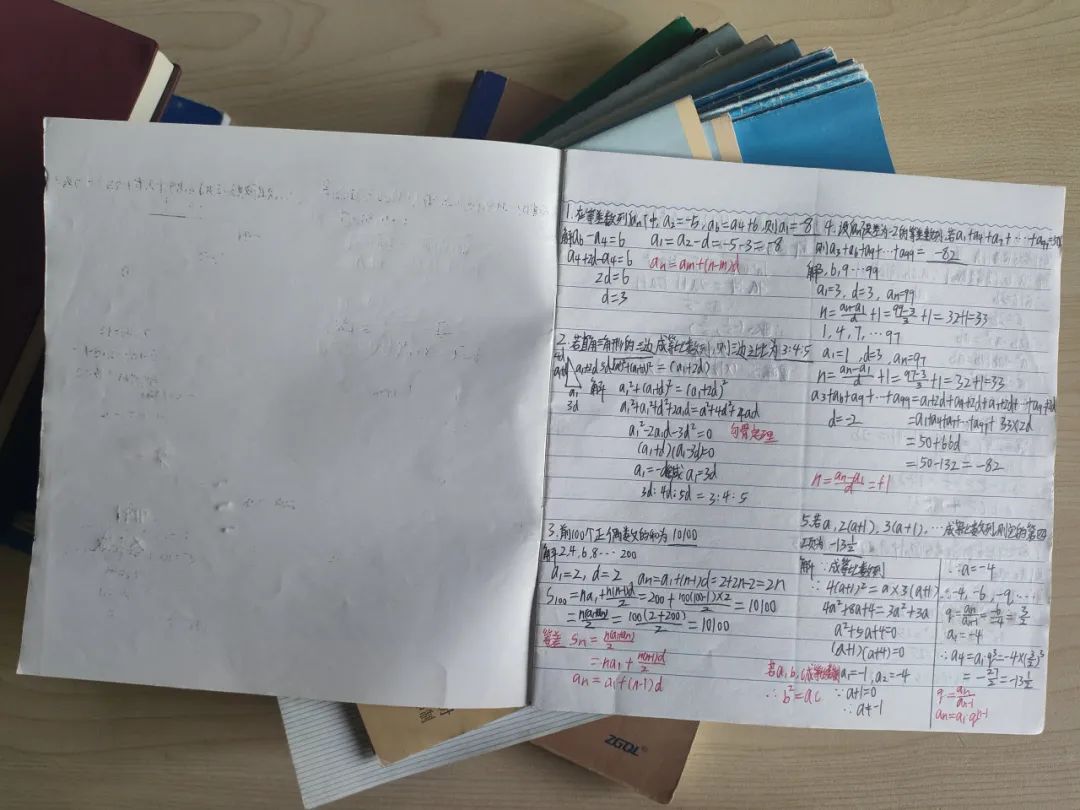 1. 在等差数列{an}中, a₂=-5, a₆=a₄+6, 则a₁=-8
解a₆-a₄=6 a₁=a₂-d=-5-3=-8
a₄+2d-a₄=6 an=am+(n-m)d
2d=6
d=3
2. 若直角三角形的三边成等比数列, 则三边之比为3:4:5
解 a₁²+(a₁+d)²=(a₁+2d)²
a₁²+a₁²+d²+2a₁d=a²+4d²+4ad
a₁²-2a₁d-3d²=0 勾骨定理
(a₁+d)(a₁-3d)=0
a₁=-d或a₁=3d
3d:4d:5d=3:4:5
3. 前100个正偶数的和为10100
解2,4,6,8…200
a₁=2, d=2 an=a₁+(n-1)d=2+2n-2=2n
S₁₀₀=na₁+n(n-1)d/2=200+100(100-1)×2/2=10100
=n(a₁+an)/2=100(2+200)/2=10100
等差 Sn=n(a₁+an)/2
=na₁+n(n-1)d/2
an=a₁+(n-1)d
4. 设{an}公差为-2的等差数列,若a₁+a₄+a₇+…+a₉₇=50
则a₃+a₆+a₉+…+a₉₉=-82
解3,6,9…99
a₁=3, d=3, an=99
n=an-a₁/d+1=99-3/3+1=32+1=33
1, 4, 7, …97
a₁=1, d=3, an=97
n=an-a₁/d+1=97-3/3+1=32+1=33
a₃+a₆+a₉+…+a₉₉=a₁+2d+a₄+2d+a₇+2d+…+a₉₇+2d
d=-2 =a₁+a₄+a₇+…+a₉₇+33×2d
=50+66d
=50-132=-82
n=an-a₁/d=+1
5. 若a, 2(a+1), 3(a+1), …成等比数列,则它的第四
项为 -13½
解 ∵成等比数列
∴4(a+1)²=a×3(a+1)
4a²+8a+4=3a²+3a
a²+5a+4=0
(a+1)(a+4)=0
a₁=-1, a₂=-4
∵a+1=0
∴a≠-1
若a,b,c成等比数列
∴b²=ac
∴a=-4
∴-4,-6,-9,…
q=an/an-1=-6/-4=3/2
a₁=-4
∴a₄=a₁q³=-4×(3/2)³
=-27/2=-13½
q=an/an-1
an=a₁qⁿ⁻¹
ZGQL®